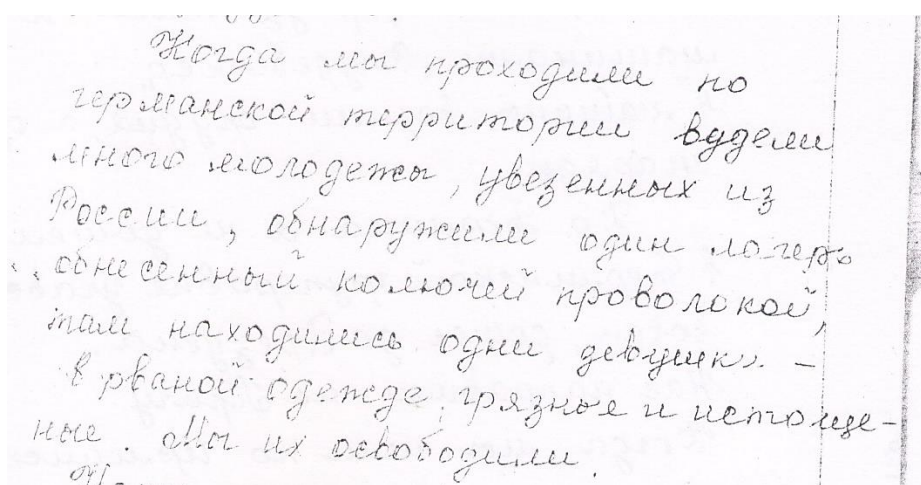 Когда мы проходили по
германской территории видели
много молодежы, увезенных из
России, обнаружили один лагерь
обнесенный колючей проволокой,
там находились одни девушки –
в рваной одежде, грязные и истоще-
ные. Мы их освободили.